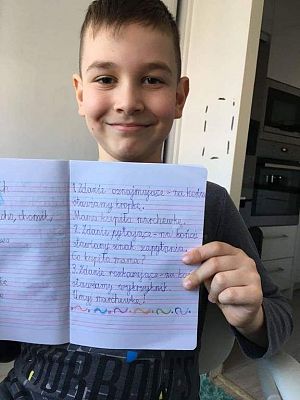 ch
cho, chomik,
1. Zdanie oznajmujące - na końcu
stawiamy kropkę.
Mama kupiła marchewkę.
2. Zdanie pytające - na końcu
stawiamy znak zapytania.
Co kupiła mama?
3. Zdanie rozkazujące - na końcu
stawiamy wykrzyknik.
Umyj marchewkę!